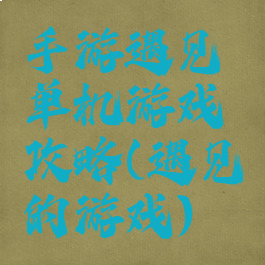 手游遇见
单机游戏
攻略(遇见
的游戏)